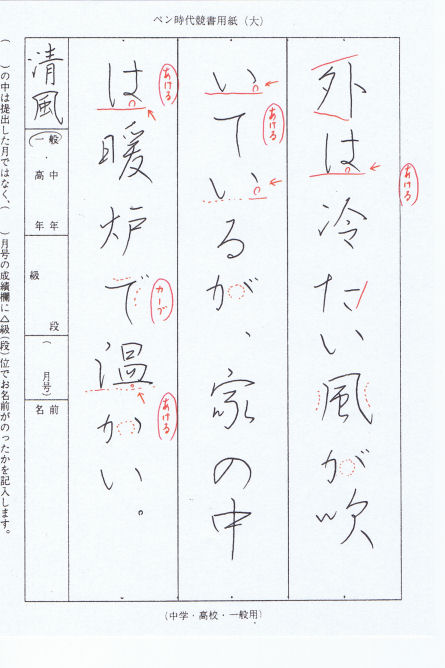 ペン時代競書用紙(大)
外は冷たい風が吹
いているが、家の中
は暖炉で温かい。
あける
あける
あける
カーブ
あける
清風
一般・高中
年年
級
段
(月号)
名前
( )の中は提出した月ではなく、( )月号の成績欄に△級(段)位でお名前がのったかを記入します。
(中学・高校・一般用)